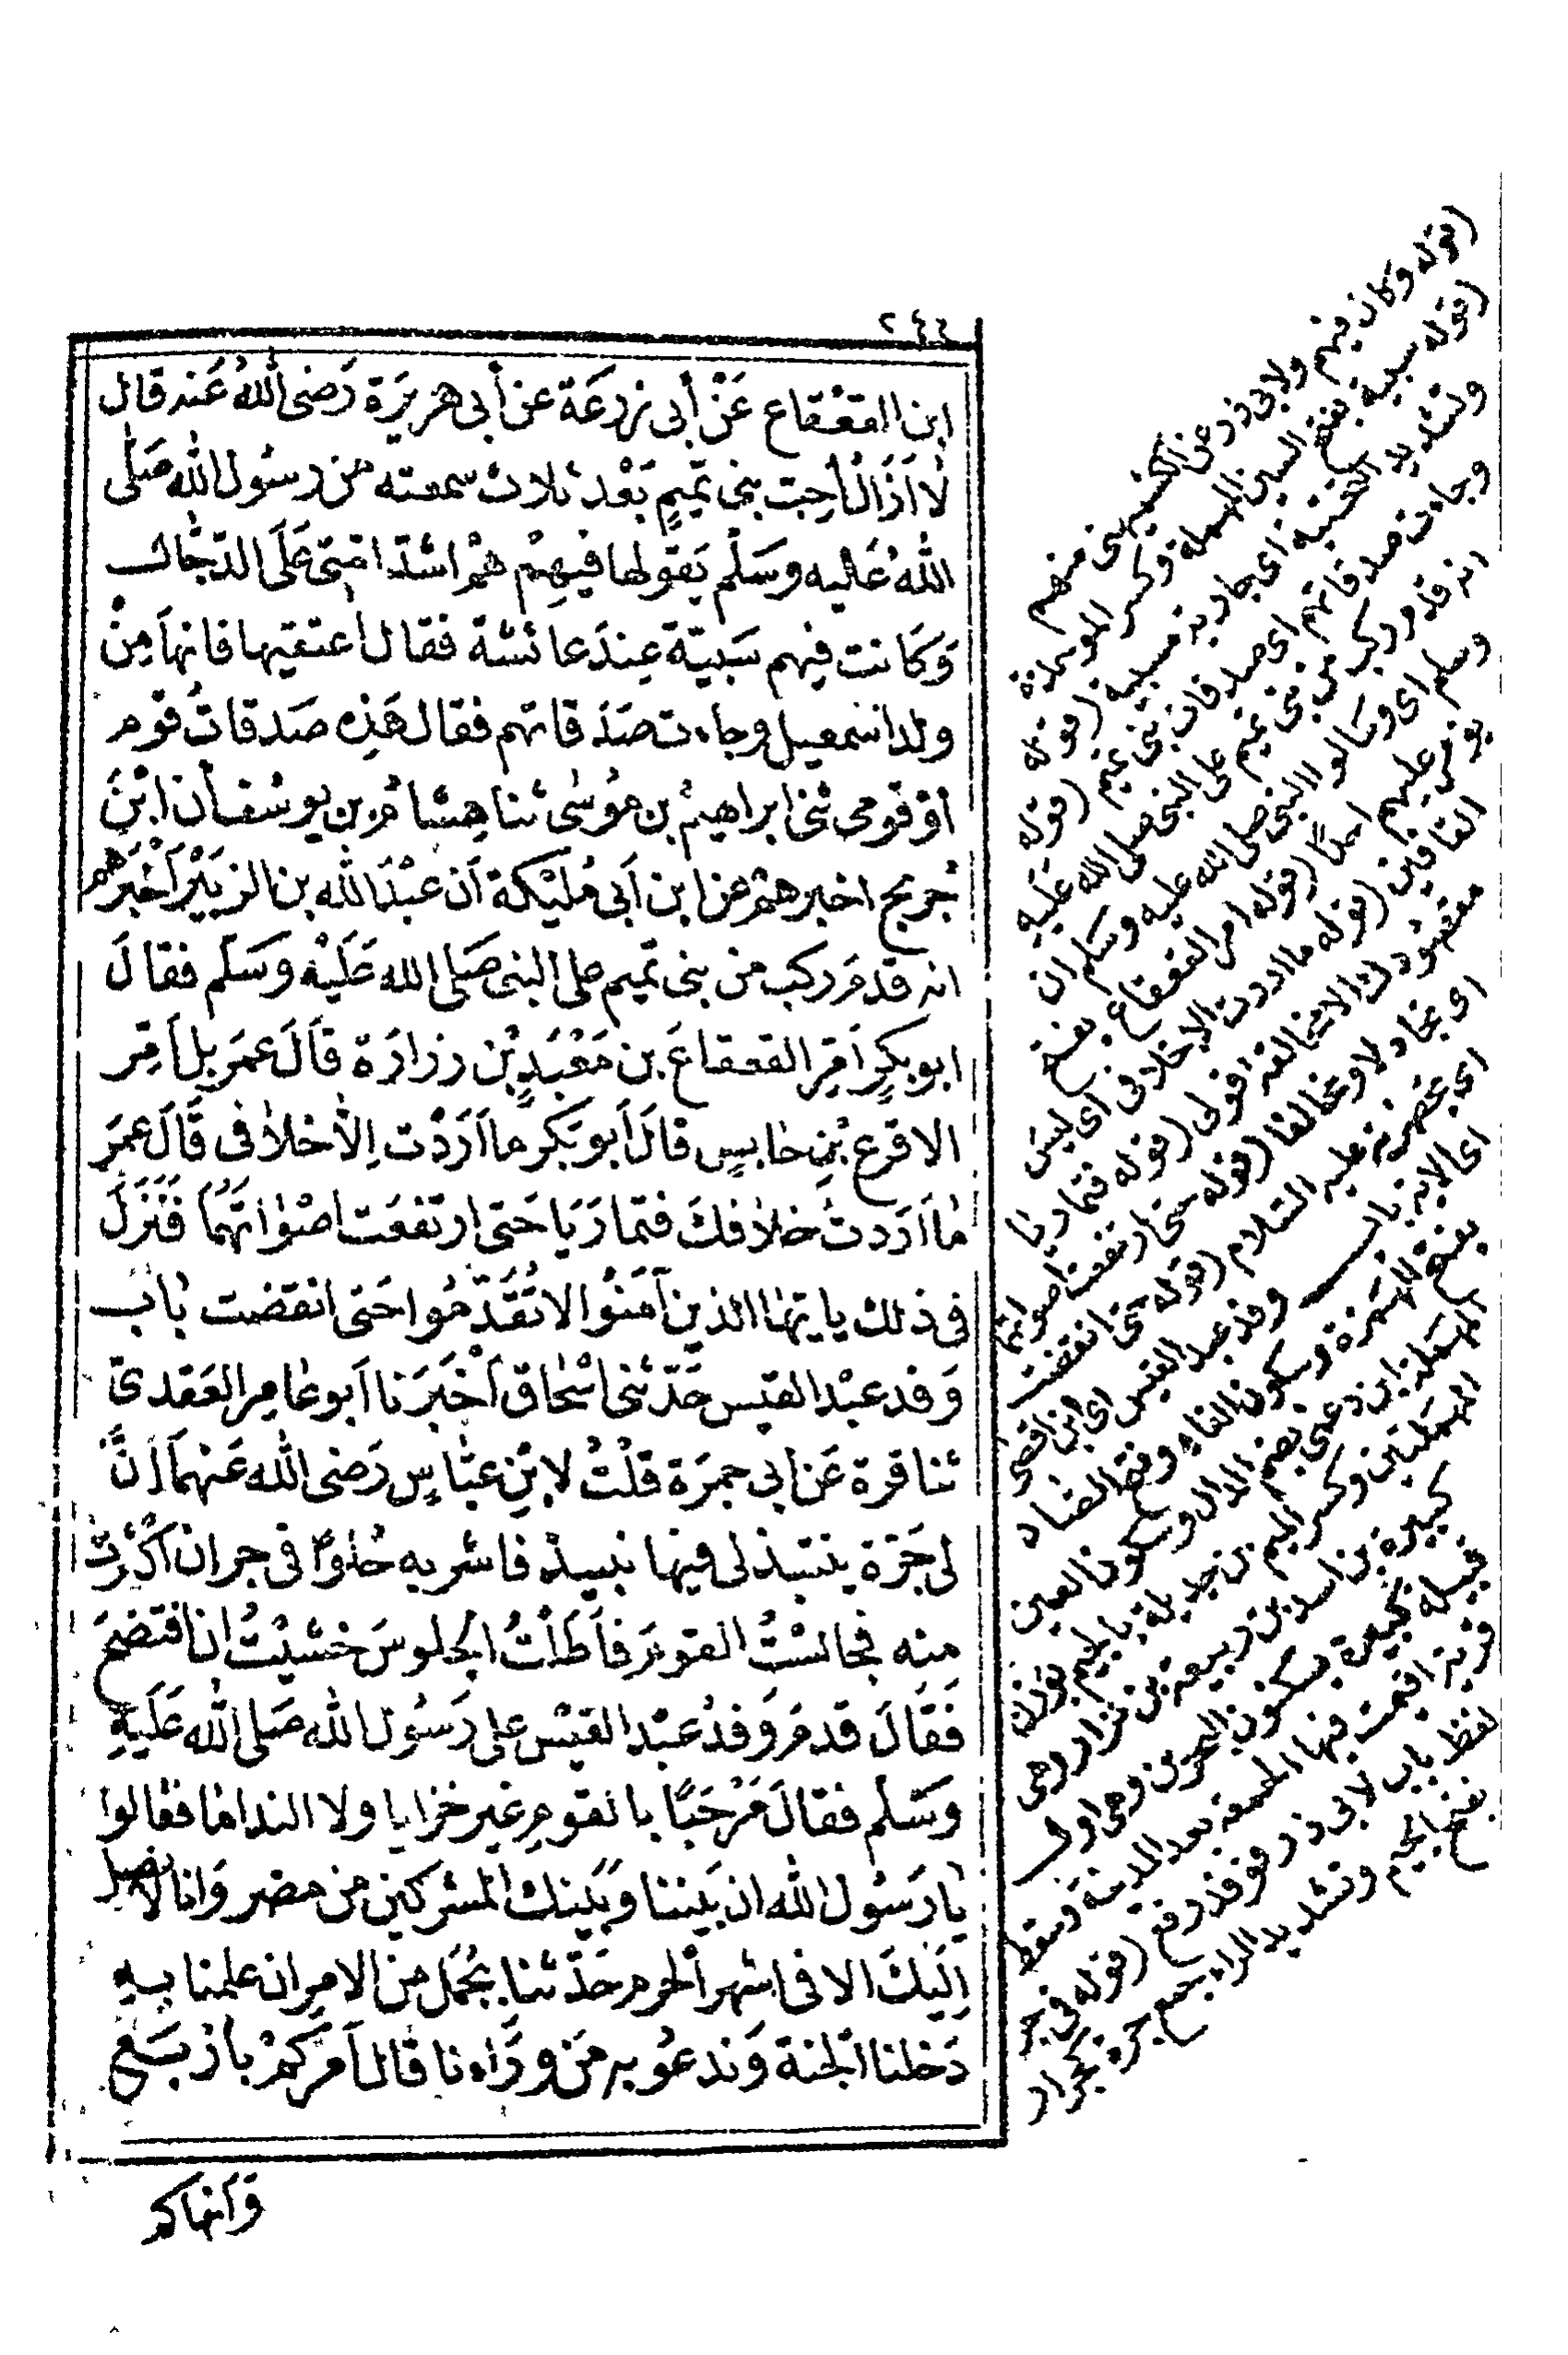 ٢٤٤
ابن القعقاع عَنْ أبى زرعَة عن أبى هريرَة رَضى اللهُ عَنه قال
لا اَزَالُ اُحِبّ بنى تَميمٍ بَعْد ثلاث سمعته من رسُول الله صَلى
اللهُ عَليه وسَلم يَقولها فيهِمْ هُمْ اشدّ امّتى عَلَى الدّجّال
وَكَانت فيهم سَبيّة عِندَ عائشة فقال أعتقيها فانهَا مِنْ
ولد اسْمعيل وجاءت صَدَقاتهم فقال هَذِه صَدقاتُ قوم
أوْ قومى ثنى ابراهيمُ بن مُوسى ثنا هِشامُ بن يوسُف أن ابْنَ
جُريج اخبرهمْ عن ابن اَبى مُليْكة اَن عبْدَ الله بن الزبَيْر اَخْبَرَهم
انه قدمَ رَكب من بنى تميم على النبى صَلى الله عَليْه وَسَلم فقالَ
ابو بكرٍ اَمّر القعقاعَ بن مَعْبَدِ بْن زرارَة قاَلَ عمَر بل اَمّر
الاقرع بْن حابسٍ قالَ اَبو بَكر ما اَرَدْت اِلاّ خلافى قَالَ عمَر
مَا اَرَدتُ خلافكَ فتمارَيَا حَتى ارتفعَت اَصْوَاتهُمَا فَنَزَلَ
فى ذلك يا ايها الذين آمَنُوا لا تُقَدِّمُوا حَتى انقضت بَاب
وَفد عبْد القيس حَدّثنى اسْحَاق اَخْبَرَنا اَبو عَامِر العَقدىّ
ثنا قرة عَن ابى جمرَة قلْتُ لابْنِ عبّاسٍ رَضى الله عَنهمَا اِنَّ
لى جَرّة ينتبذ لى فيها نبيذ فاشربه حُلوًا فى جر ان اكْثَرْتُ
منه فجالسْتُ القومَ فاَطَلْتُ الجلوسَ خشيْتُ ان افتضحَ
فَقَالَ قدمَ وَفدُ عبْد القيْس على رَسُول الله صَلى الله عَليَهِ
وَسَلم فقالَ مَرْحَبًا بالقومِ غير خزايا ولا الندامَا فقالوا
يا رَسُول الله ان بَيننا وَبَينك المشركين من مضر وَانا لا نصل
اِلَيكَ الا فى اشهر الحرم حَدّثنا بجُمَل من الامر ان علمنا بهِ
دَخلنا الجنة وَندعُو به مَن ورَاءنا قال اَمركمْ باَرْبَع
وَاَنهاكم
(قوله وكان فيهم ولابى ذر عن الكشميهنى منهم
(قوله سبية بفتح السين المهملة وكسر الموحدة
وتشديد التحتية اى جارية مسبية (قوله
وجاءت صدقاتهم اى صدقات بنى تميم (قوله
انه قدم ركب من بنى تميم على النبى صلى الله عليه
وسلم اى وسألوا النبى صلى الله عليه وسلم ان
يؤمر عليهم احدًا (قوله امر القعقاع بفتح
القافين (قوله ما اردت الا خلافى اى ليس
مقصودك الا مخالفة قولى (قوله فتماريا
اى تجادلا وتخالفا (قوله حتى ارتفعت اصواتهما
اى بحضرته عليه السلام (قوله حتى انقضت
اى الآية باب وفد عبد القيس اى ابن افصى
بفتح الهمزة وسكون الفاء وفتح الصاد
المهملة ابن دعمى بضم الدال وسكون العين
المهملتين وكسر الميم بن جديلة بالجيم بوزن
كبيرة بن اسد بن ربيعة بن نزار وهى
قبيلة كبيرة يسكنون البحرين وهى اول
قرية اقيمت فيها الجمعة بعد المدينة وسقط
لفظ باب لابى ذر فوفد رفع (قوله فى جر
بفتح الجيم وتشديد الراء جمع جرة كجرار